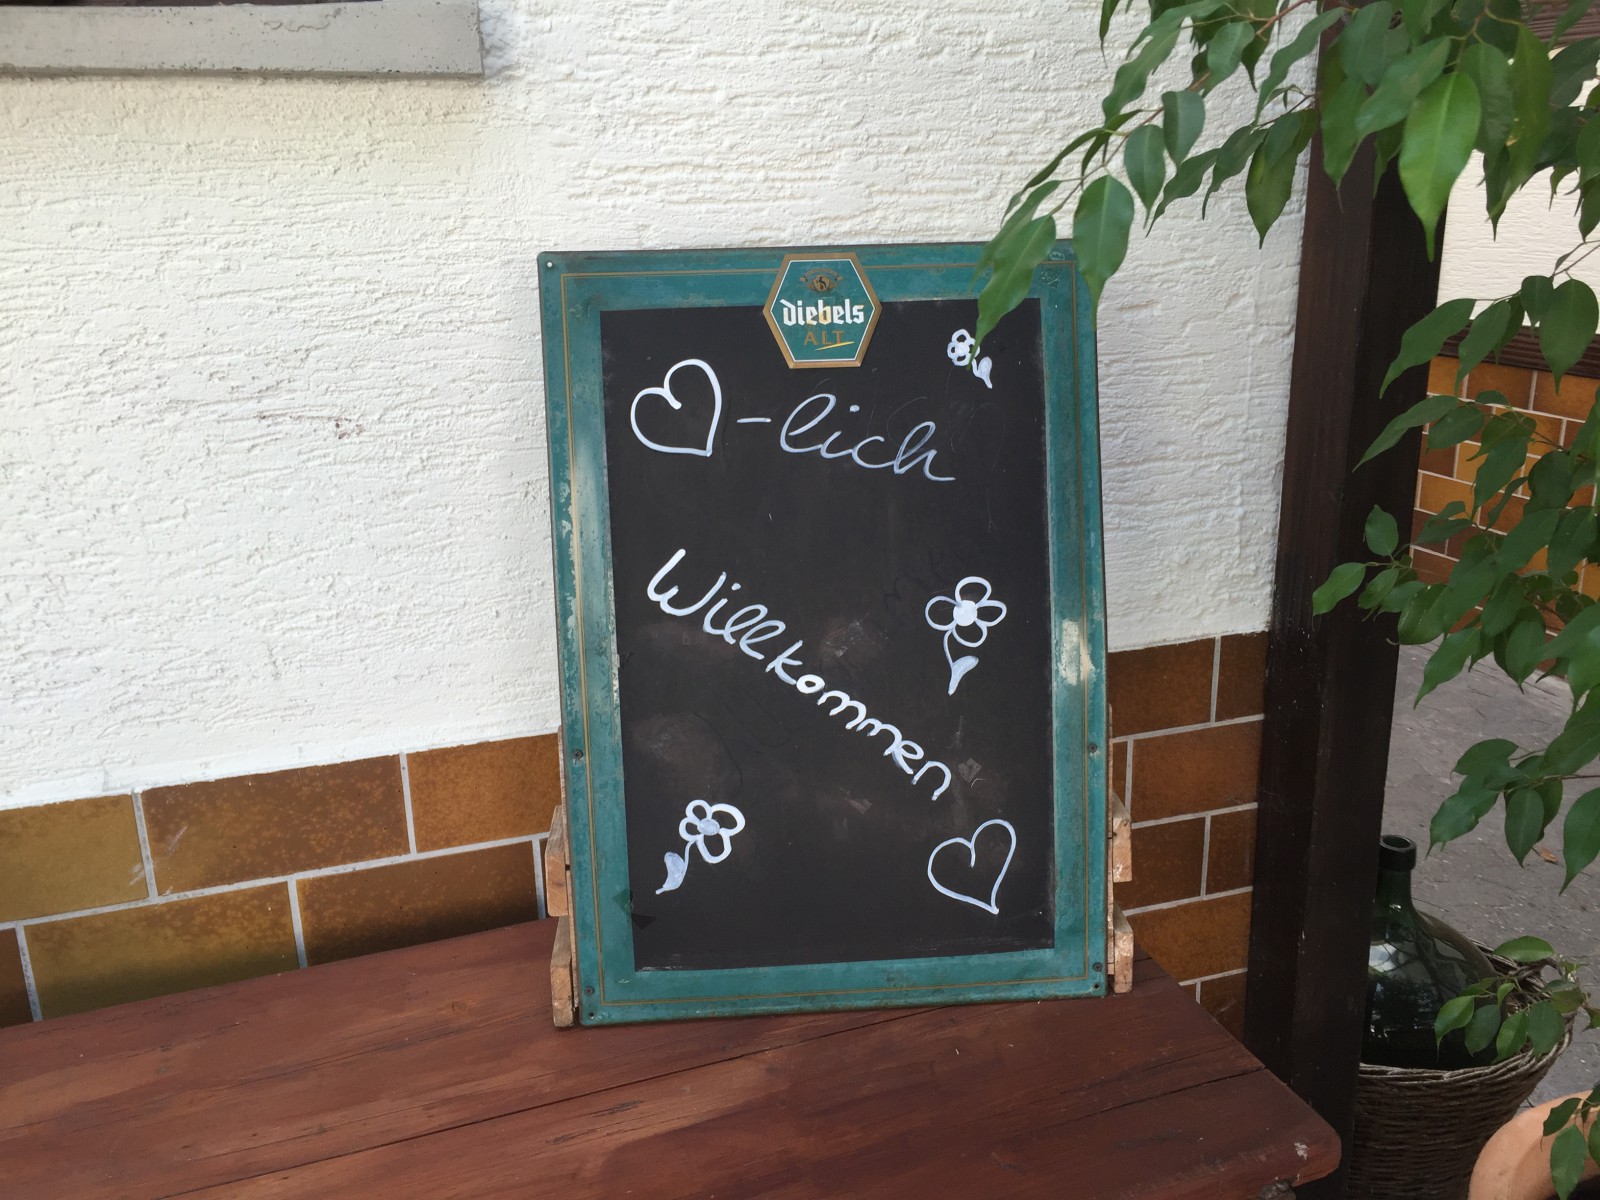 diebels
ALT
♡-lich
Willkommen